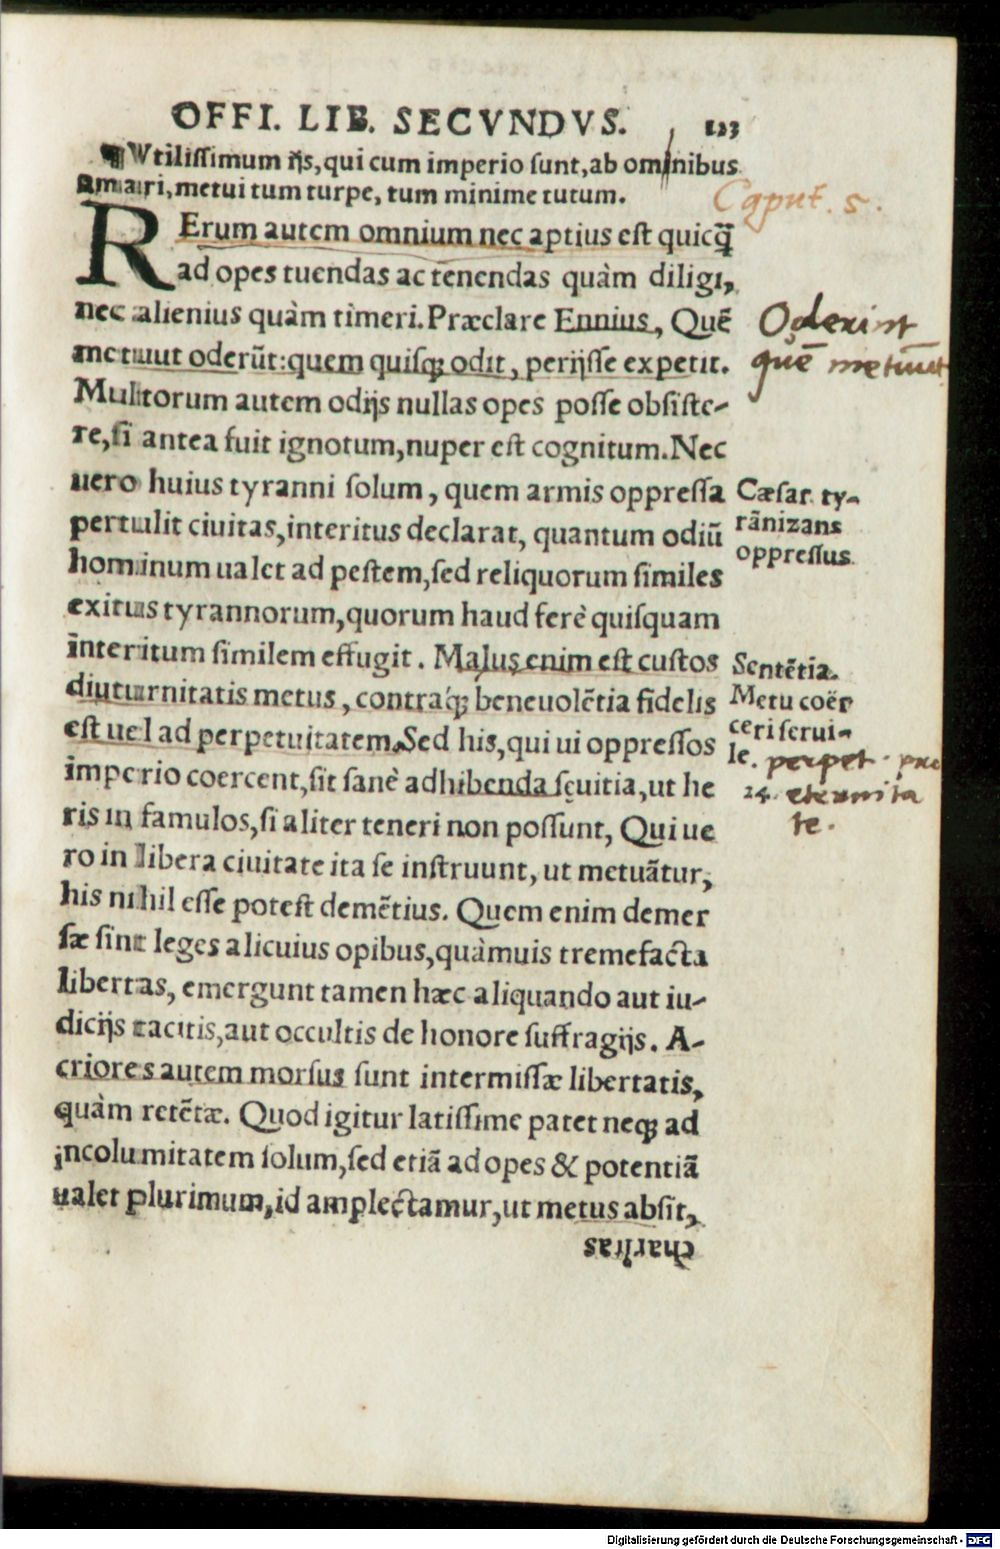 OFFI. LIB. SECVNDVS. 123
¶ Vtilissimum ijs, qui cum imperio sunt, ab omnibus
amari, metui tum turpe, tum minime tutum.
Caput. 5.
RErum autem omnium nec aptius est quicq̃
ad opes tuendas ac tenendas quàm diligi,
nec alienius quàm timeri. Præclare Ennius, Quẽ
metuut oderũt: quem quisq; odit, perijsse expetit.
Oderint
quẽ metuũt
Multorum autem odijs nullas opes posse obsiste-
re, si antea fuit ignotum, nuper est cognitum. Nec
uero huius tyranni solum, quem armis oppressa
pertulit ciuitas, interitus declarat, quantum odiũ
hominum ualet ad pestem, sed reliquorum similes
Cæsar ty-
rãnizans
oppressus.
exitus tyrannorum, quorum haud ferè quisquam
interitum similem effugit. Malus enim est custos
diuturnitatis metus, contraq́; beneuolẽtia fidelis
est uel ad perpetuitatem. Sed his, qui ui oppressos
Sentẽtia.
Metu coër
ceri serui-
le. perpet.
24. eternita
te.
imperio coercent, sit sanè adhibenda sęuitia, ut he
ris in famulos, si aliter teneri non possunt, Qui ue
ro in libera ciuitate ita se instruunt, ut metuãtur,
his nihil esse potest demẽtius. Quem enim demer
sæ sint leges alicuius opibus, quàmuis tremefacta
libertas, emergunt tamen hæc aliquando aut iu-
dicijs tacitis, aut occultis de honore suffragijs. A-
criores autem morsus sunt intermissæ libertatis,
quàm retẽtæ. Quod igitur latissime patet neq; ad
incolumitatem solum, sed etiã ad opes & potentiã
ualet plurimum, id amplectamur, ut metus absit,
charitas
Digitalisierung gefördert durch die Deutsche Forschungsgemeinschaft - DFG